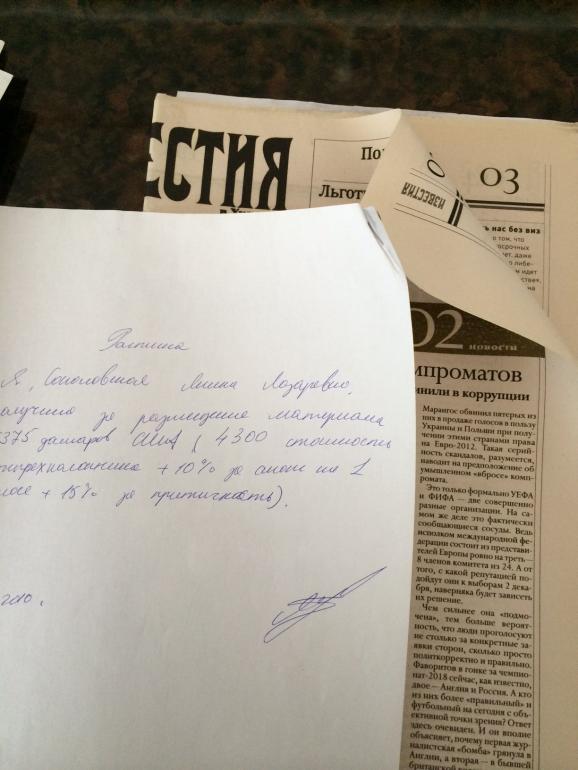 ЕСТИЯ
03
Льгот
ИЗВЕСТИЯ
ь нас без виз
о том, что
02
НОВОСТИ
мпроматов
инили в коррупции
Марангос обвинил пятерых из
них в продаже голосов в пользу
Украины и Польши при полу-
чении этими странами права
на Евро-2012. Такая серий-
ность скандалов, разумеется,
наводит на предположение об
умышленном «вбросе» комп-
ромата.
Это только формально УЕФА
и ФИФА — две совершенно
разные организации. На са-
мом же деле это фактически
сообщающиеся сосуды. Ведь
исполком международной фе-
дерации состоит из представи-
телей Европы ровно на треть —
8 членов комитета из 24. А от
того, с какой репутацией по-
дойдут они к выборам 2 дека-
бря, наверняка будет зависеть
их решение.
Чем сильнее она «подмо-
чена», тем больше вероят-
ность, что люди проголосуют
не столько за конкретные за-
явки сторон, сколько просто
политкорректно и правильно.
Фаворитов в гонке за чемпио-
нат-2018 сейчас, как известно,
двое — Англия и Россия. А кто
из них более «правильный» и
футбольный на сегодня с объ-
ективной точки зрения? Ответ
здесь очевиден. И он вполне
объясняет, почему первая жур-
налистская «бомба» грянула в
Англии, а вторая — в бывшей
Расписка
Я, Соколовская Лазаревна,
олучила за размещение материала
375 долларов США (4300 стоимость
+ 10% за анонс на 1
лосе + 15% за).
2010.